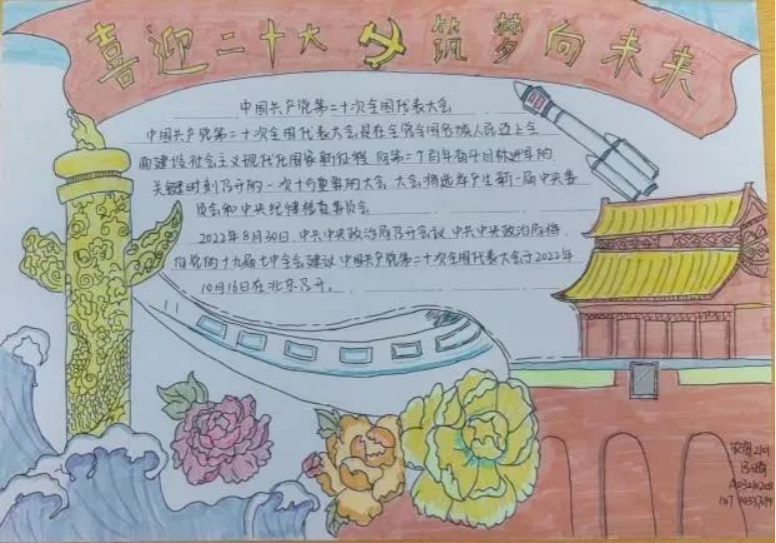 喜迎二十大 筑梦向未来
中国共产党第二十次全国代表大会
中国共产党第二十次全国代表大会,是在全党全国各族人民迈上全
面建设社会主义现代化国家新征程、向第二个百年奋斗目标进军的
关键时刻召开的一次十分重要的大会,大会将选举产生新一届中央委
员会和中央纪律检查委员会
2022年8月30日,中共中央政治局召开会议,中共中央政治局将
向党的十九届七中全会建议,中国共产党第二十次全国代表大会于2022年
10月16日在北京召开。
2101